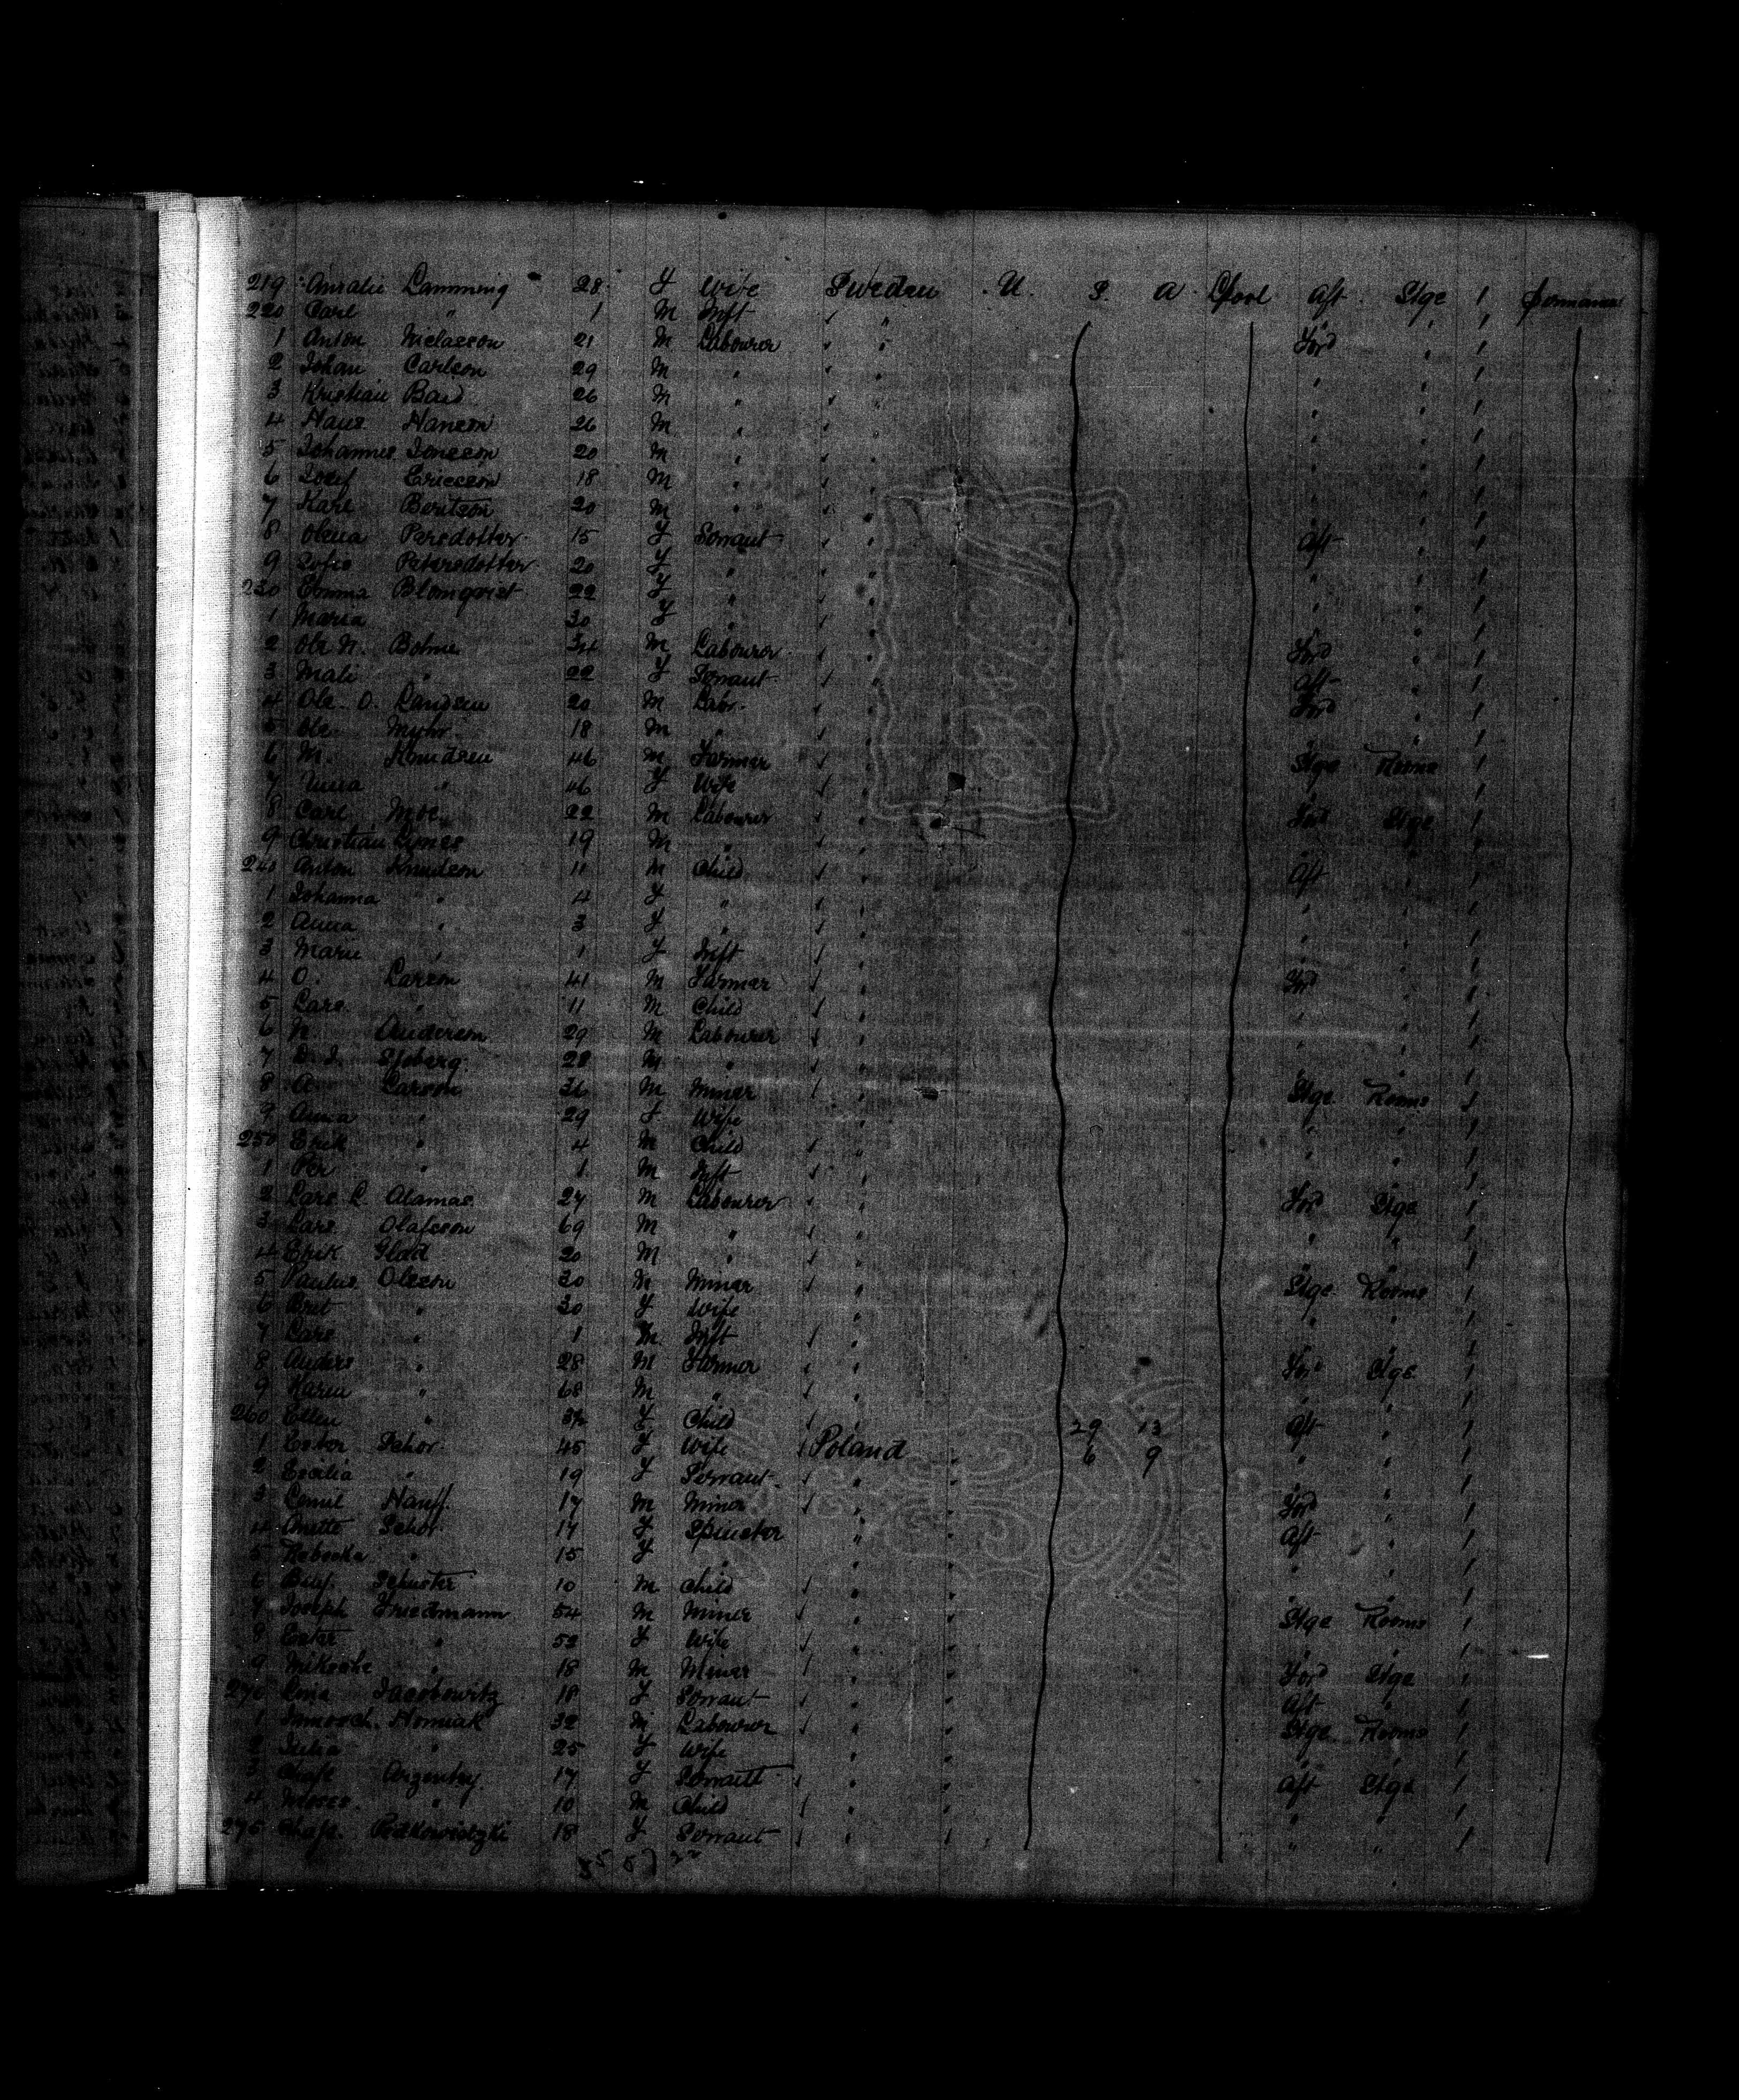 219 Amalie Lamming 28 F Wife Sweden U. S. A L'pool Aft Stge 1 Permanent
220 Carl " 1 M Inft " " 1
1 Anton Nielasson 21 M Labourer " Ford " 1
2 Johan Carlson 29 M " " " " 1
3 Kristian Baid 26 M " " " " 1
4 Hans Hanson 26 M " " " " 1
5 Johannes Jonsson 20 M " " " " 1
6 Josef Ericsson 18 M " " " " 1
7 Karl Beritson 20 M " " " " 1
8 Olena Persdotter 15 F Servant " Aft " 1
9 Sofie Petersdotter 20 F " " " " 1
230 Emma Blomqvist 22 F " " " " 1
1 Maria " 30 F " " " " 1
2 Ole N. Bohme 34 M Labourer " Ford " 1
3 Mali " 22 F Servant " Aft " 1
4 Ole O. 20 M Labr. " Ford " 1
5 Ole Myhr 18 M " " " " 1
6 M. Knudsen 46 M Farmer " Stge Rooms 1
7 Anna " 46 F Wife " " " 1
8 Carl Moe 22 M Labourer " Ford Stge 1
9 Christian 19 M " " " " 1
240 Anton Knudson 11 M Child " Aft " 1
1 Johanna " 4 F " " " " 1
2 Anna " 3 F " " " " 1
3 Marie " 1 F Inft " " " 1
4 O. Larson 41 M Farmer " Ford " 1
5 Lars " 11 M Child " " " 1
6 N. Anderson 29 M Labourer " " " 1
7 Sjoberg 28 M " " " " 1
8 A Larson 36 M Miner " Stge Rooms 1
9 Anna " 29 F Wife " " " 1
250 Erik " 4 M Child " " " 1
1 Per " 1 M Inft " " " 1
2 Lars L. Alamas 27 M Labourer " Ford Stge 1
3 Lars Olafsson 69 M " " " " 1
4 Erik Glad 20 M " " " " 1
5 Paulus Olsson 30 M Miner " Stge Rooms 1
6 Brit " 30 F Wife " " " 1
7 Lars " 1 M Inft " " " 1
8 Anders " 28 M Farmer " Ford Stge 1
9 Karin " 68 M " " " " 1
260 Ellen " F Child " 29 13 Aft " 1
1 Ester Schor 45 F Wife Poland " 6 9 " " 1
2 Cecilia " 19 F Servant " " " " 1
3 Hauff 17 M Miner " " Ford " 1
4 Anette Schor 17 F Spinster " " Aft " 1
5 Rebecka " 15 F " " " " " 1
6 Schuster 10 M Child " " " " 1
7 Joseph Friedmann 54 M Miner " " Stge Rooms 1
8 Ester " 52 F Wife " " " " 1
9 " 18 M Miner " " Ford Stge 1
270 Lina Jacobowitz 18 F Servant " " Aft " 1
1 Horniak 32 M Labourer " " Stge Rooms 1
2 Julia " 25 F Wife " " " " 1
3 17 F Servant " " Aft Stge 1
4 Moses " 10 M Child " " " " 1
275 18 F Servant " " " " 1